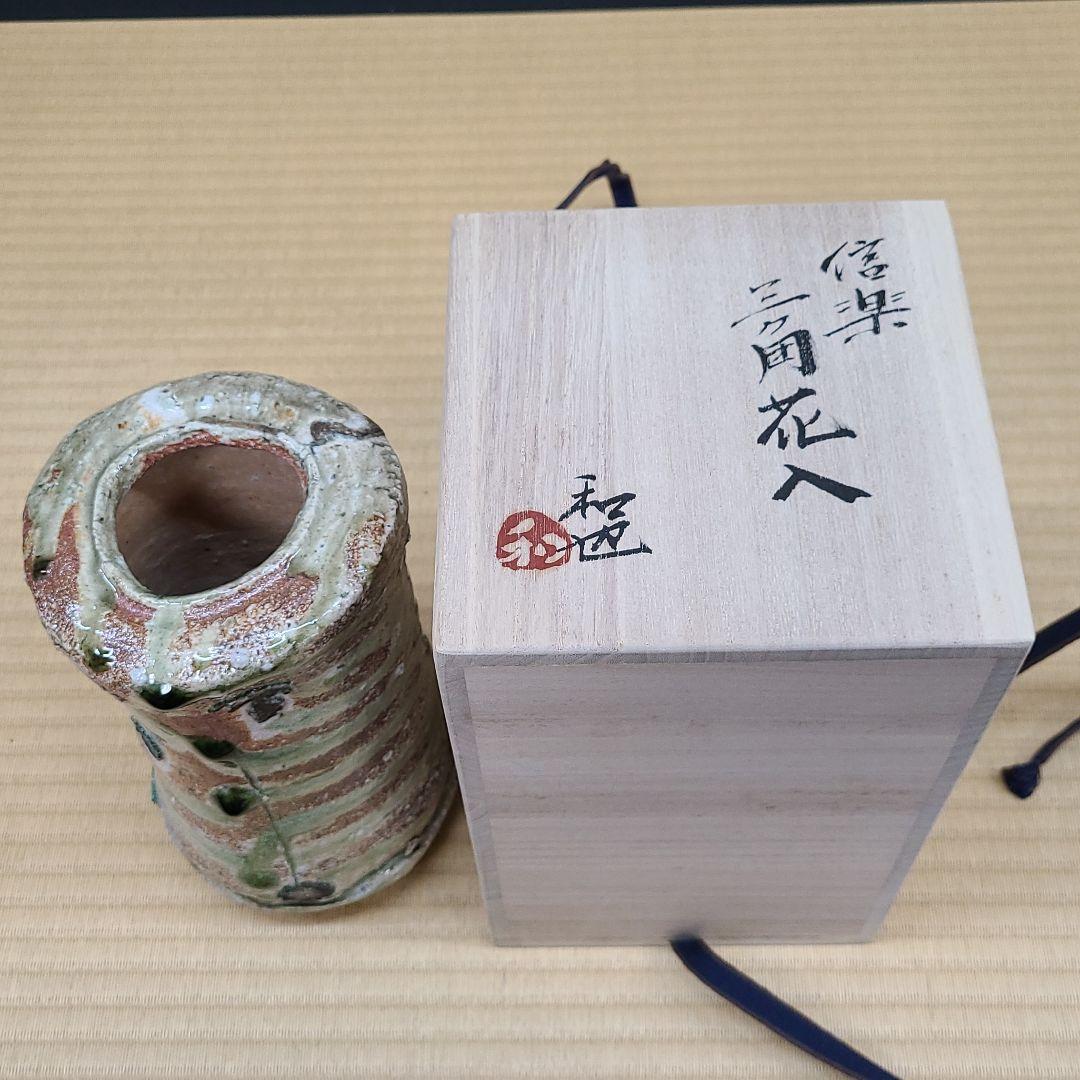 信楽
三角花入
和
和